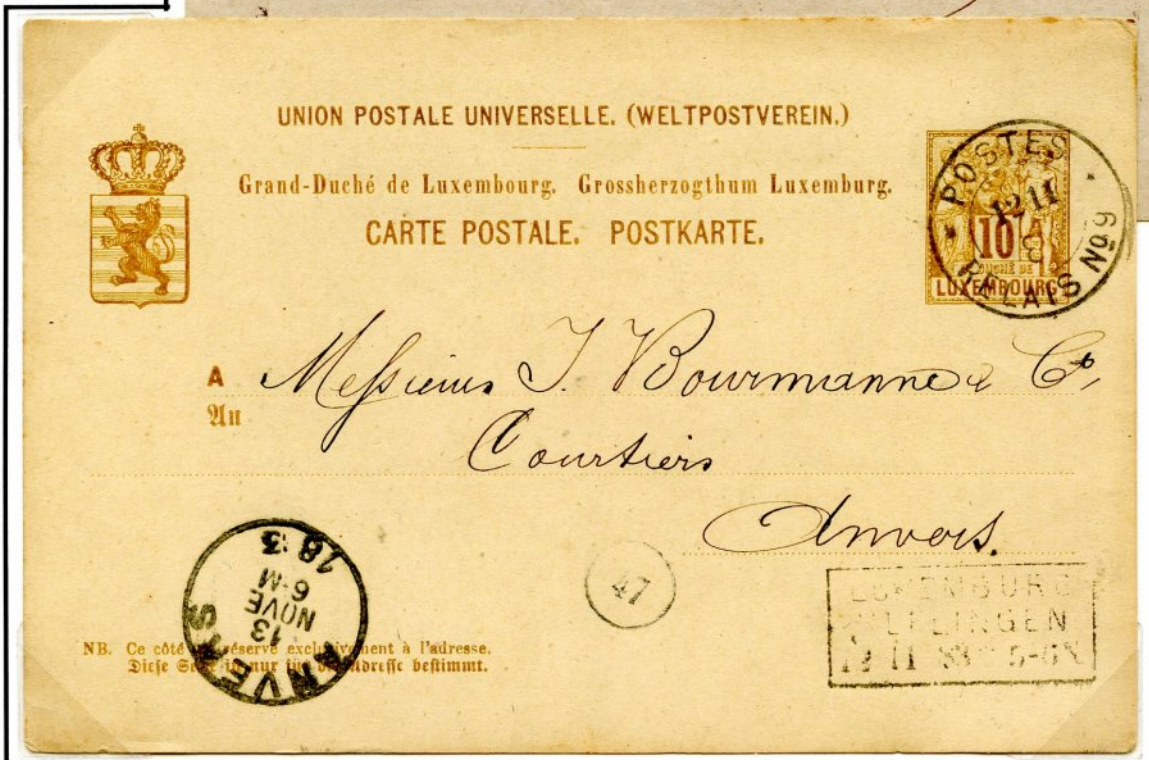 UNION POSTALE UNIVERSELLE. (WELTPOSTVEREIN.)
Grand-Duché de Luxembourg. Grossherzogthum Luxemburg.
CARTE POSTALE. POSTKARTE.
POSTES
12 11
8
RELAIS No 9
10
DUCHÉ DE
LUXEMBOURG
A Messieurs J. Bourmanne & Co,
An
Courtiers
Anvers.
ANVERS
13
NOVE
6-M
1883
47
LUXEMBURG
ULFLINGEN
12 11 83 5-6N
NB. Ce côté réservé exclusivement à l'adresse.
Diese Seite ist nur für die Adresse bestimmt.